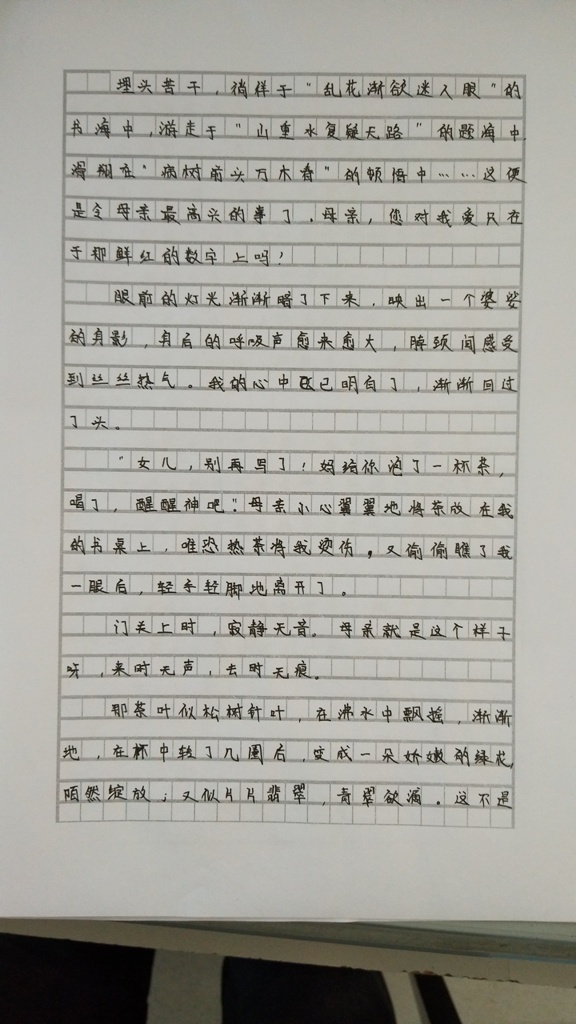 埋头苦干，徜徉于“乱花渐欲迷人眼”的
书海中，游走于“山重水复疑无路”的题海中，
滑翔在“病树前头万木春”的顿悟中……这便
是令母亲最高兴的事了。母亲，您对我爱只在
于那鲜红的数字上吗！
眼前的灯光渐渐暗了下来，映出一个婆娑
的身影，身后的呼吸声愈来愈大，脖颈间感受
到丝丝热气。我的心中已明白了，渐渐回过
了头。
“女儿，别再写了！妈给你泡了一杯茶，
喝了，醒醒神吧”！母亲小心翼翼地将茶放在我
的书桌上，唯恐热茶将我烫伤。又偷偷瞧了我
一眼后，轻手轻脚地离开了。
门关上时，寂静无音。母亲就是这个样子
呀，来时无声，去时无痕。
那茶叶似松树针叶，在沸水中飘摇，渐渐
地，在杯中转了几圈后，变成一朵娇嫩的绿花，
陌然绽放；又似片片翡翠，青翠欲滴。这不是